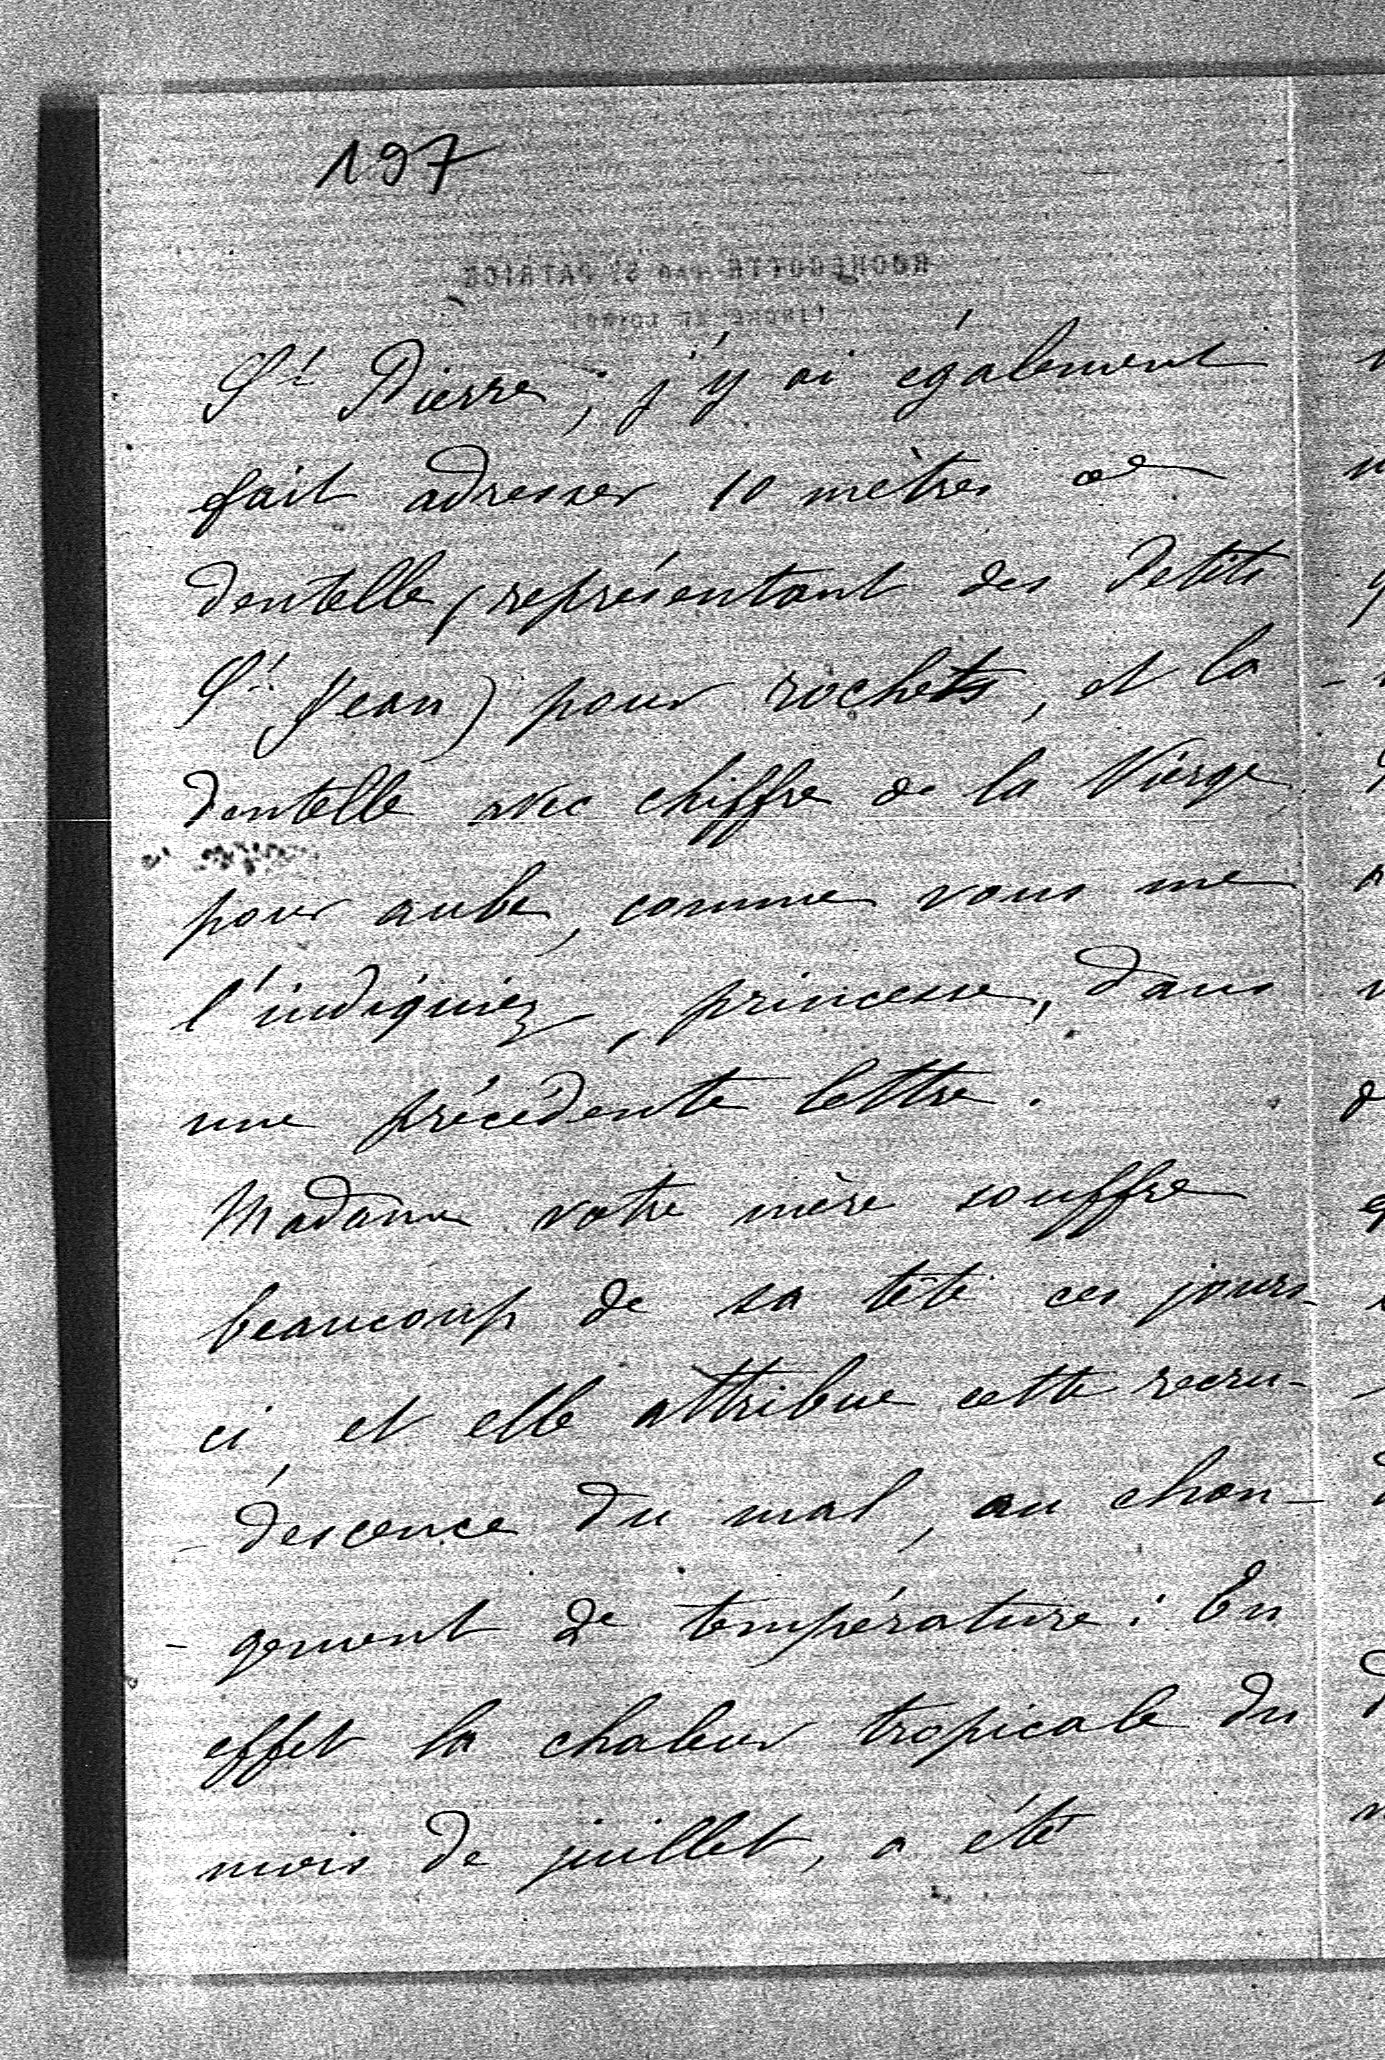 197
ROCHECOTTE PAR ST. PATRICE
INDRE ET LOIRE
St Pierre ; j'y ai également
fait adresser 10 mètres de
dentelle (représentant des petits
St Jean) pour rochets, et la
dentelle avec chiffre de la Vierge
pour aube, comme vous me
l'indiquiez, princesse, dans
une précédente lettre.
Madame votre mère souffre
beaucoup de sa tête ces jours-
ci et elle attribue cette recru-
-descence du mal, au chan-
-gement de température : En
effet la chaleur tropicale du
mois de juillet, a été